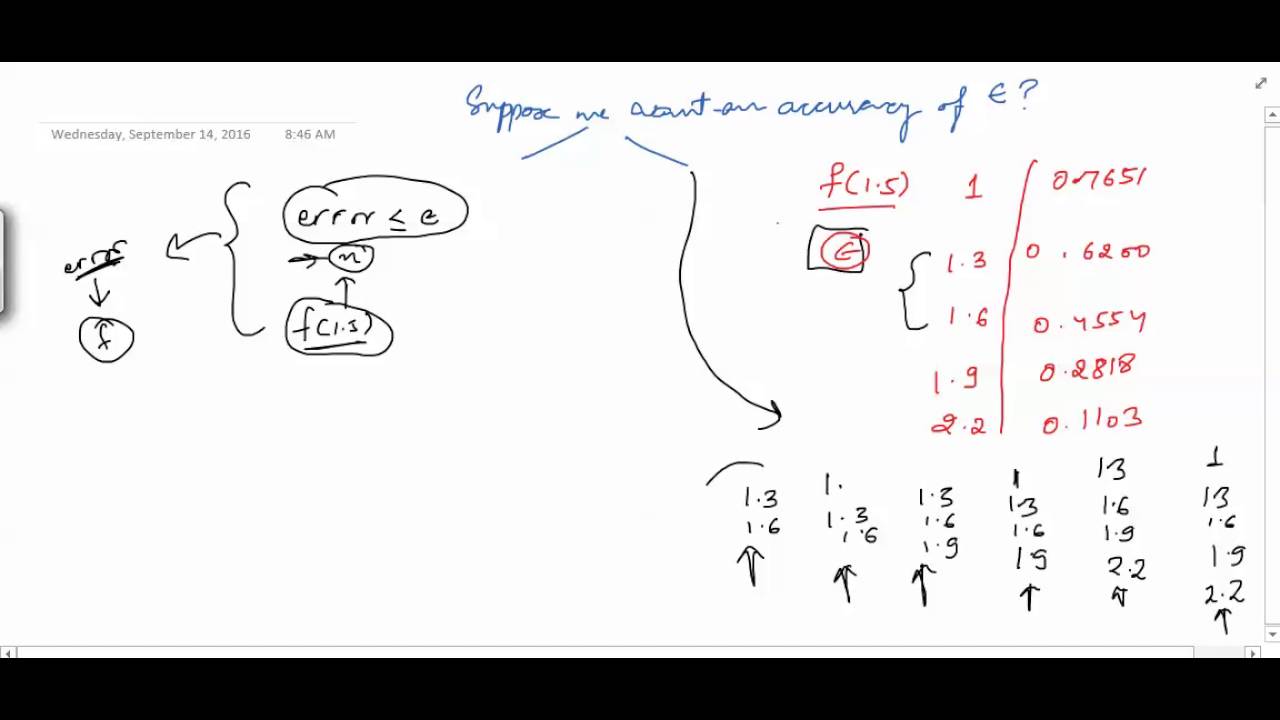 Suppose we want an accuracy of ϵ?
Wednesday, September 14, 2016 8:46 AM
error ≤ ϵ
n
f(1.5)
error
f
f(1.5) 1 0.7651
ϵ
1.3 0.6200
1.6 0.4554
1.9 0.2818
2.2 0.1103
1.3
1.6
1.
1.3
1.6
1.3
1.6
1.9
1
1.3
1.6
1.9
1.3
1.6
1.9
2.2
1
1.3
1.6
1.9
2.2